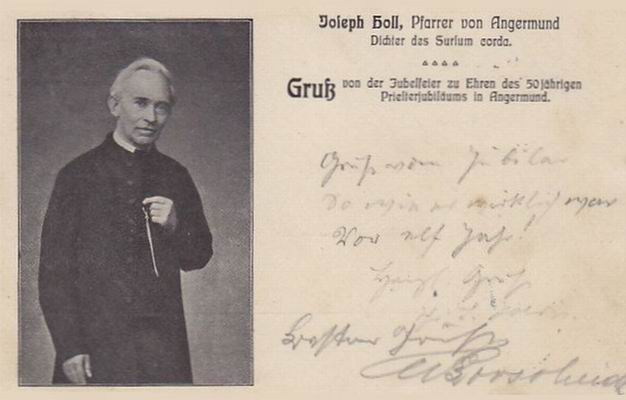 Joseph Holl, Pfarrer von Angermund
Dichter des Sursum corda.
Gruß von der Jubelfeier zu Ehren des 50jährigen
Priesterjubiläums in Angermund.
Gruß vom Jubilar
So wie er wirklich war
Vor elf Jahr!
Herzl. Gruß
Besten Gruß